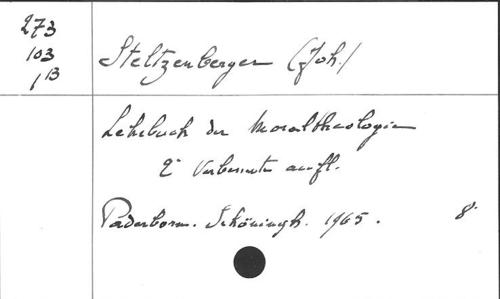 273
103
1B
Steltzenberger (Joh.)
Lehrbuch der Moraltheologie
2e Verbesserte aufl.
Paderborn. Schöningh. 1965. 8°